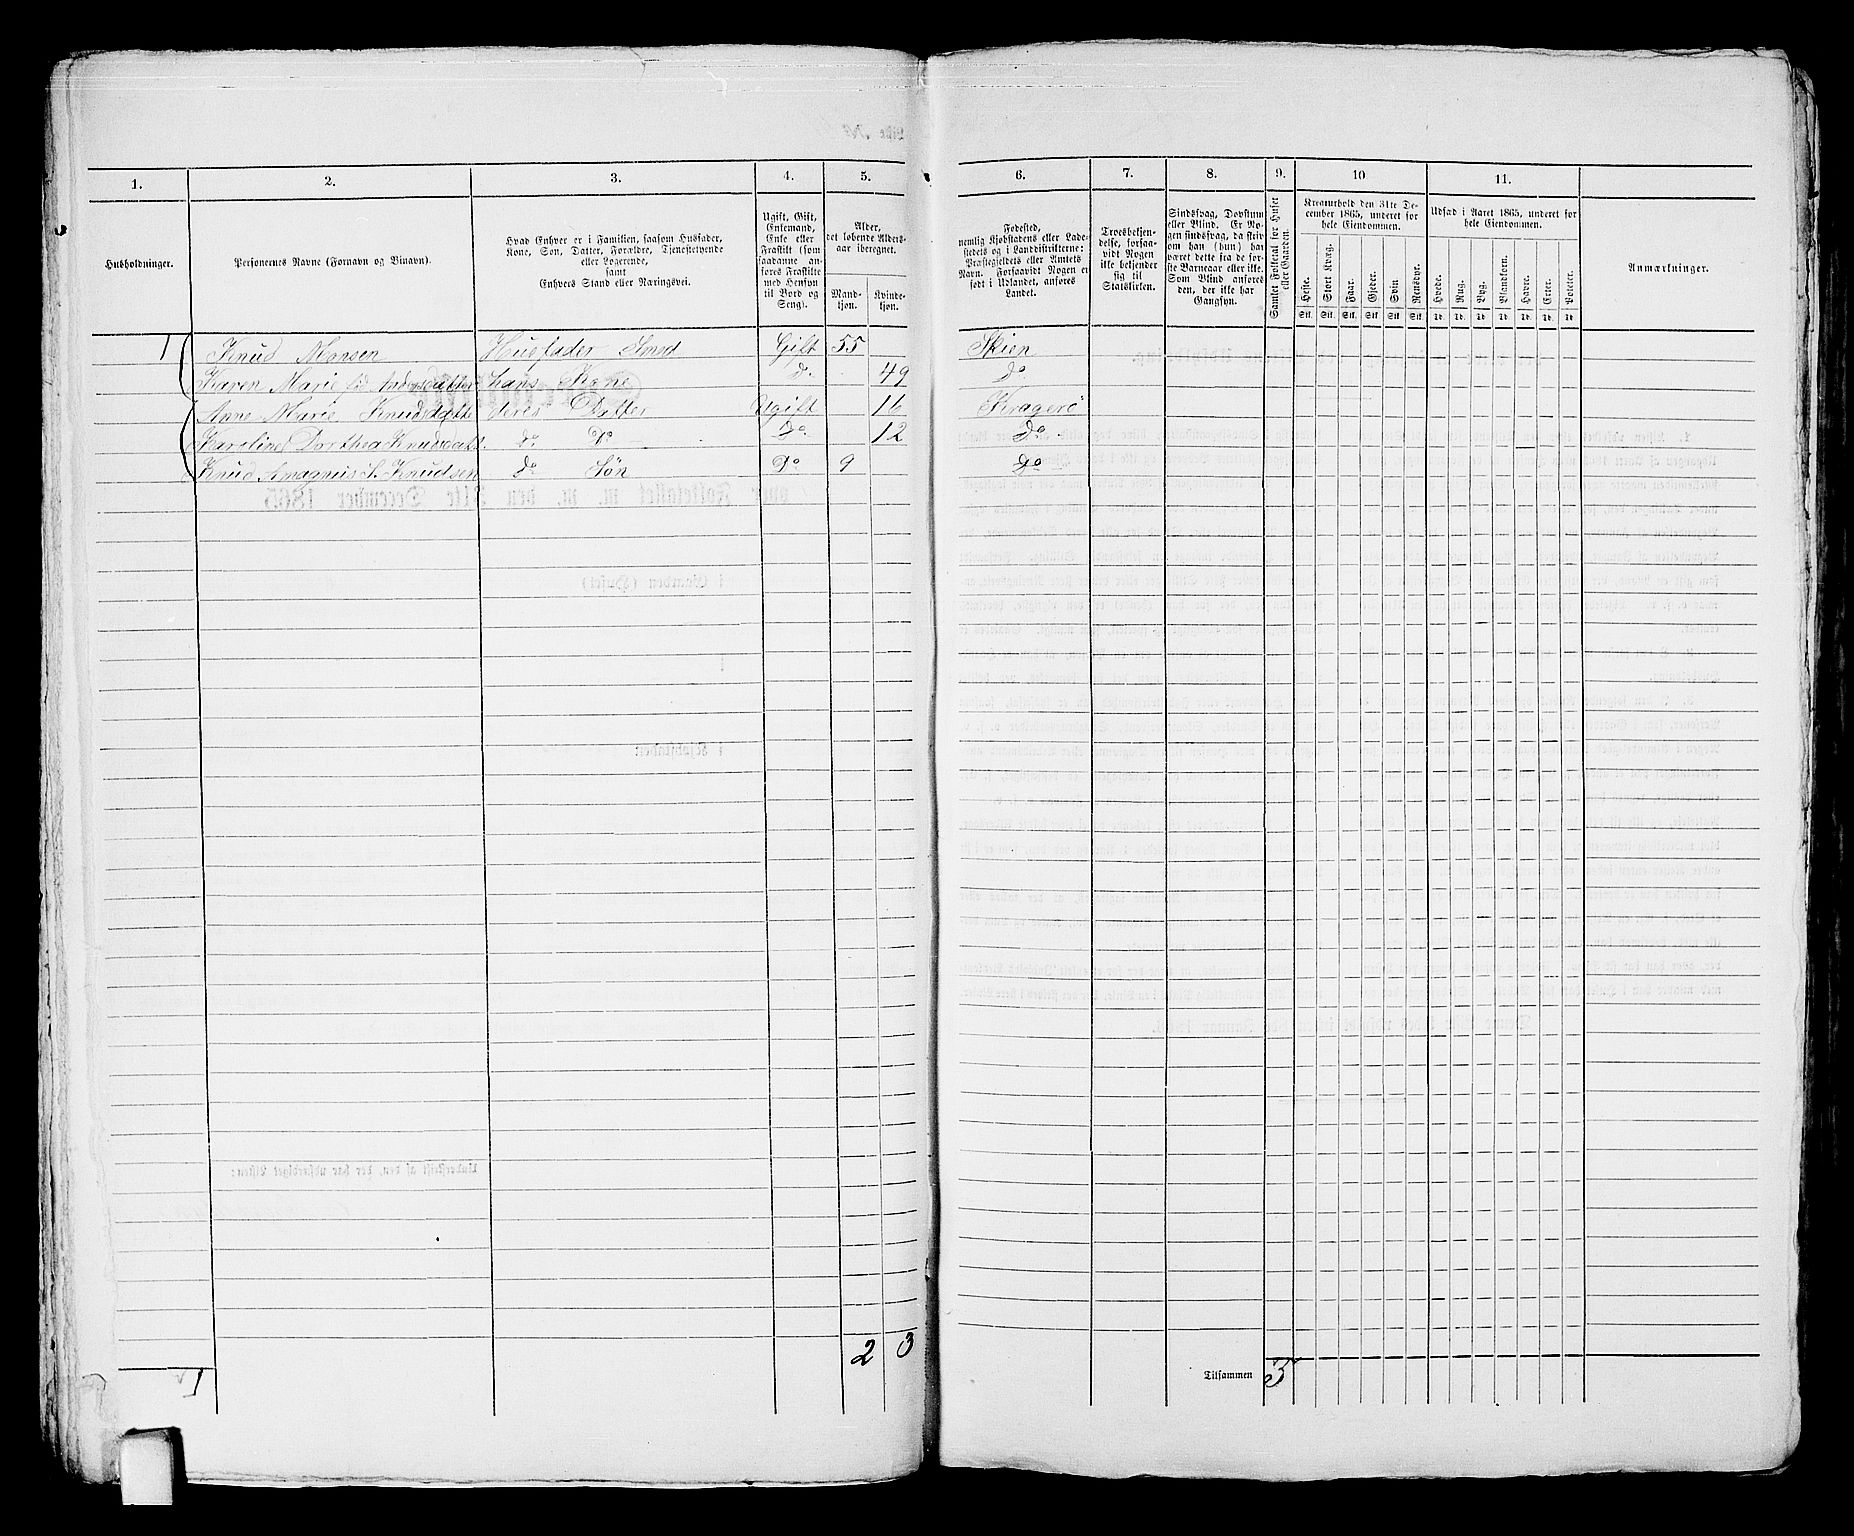 1.
2.
3.
4.
5.
Husholdninger.
Personernes Navne (Fornavn og Binavn).
Hvad Enhver er i Familien, saasom Husfader,
Kone, Søn, Datter, Forældre, Tjenestetyende
eller Logerende,
samt
Enhvers Stand eller Næringsvei.
Ugift, Gift,
Enkemand,
Enke eller
Fraskilt (som
saadanne an-
føres Fraskilte
med Hensyn
til Bord og
Seng).
Alder,
det løbende Alders-
aar iberegnet.
Mand-
kjøn.
Kvinde-
kjøn.
1 Knud Monsen Huusfader Smed Gift 55
Karen Marie fød Andersdatter hans Kone Do 49
Anne Marie Knudsdatte deres Datter Ugift 16
Karoline Dorthea Knudsdatt. do Do Do 12
Knud Amagnus S. Knudsen do Søn Do 9
2 3
1
6.
7.
8.
9.
10
11.
Fødested,
nemlig Kjøbstadens eller Lade-
stedets og i Landdistrikterne:
Præstegjeldets eller Amtets
Navn. Forsaavidt Nogen er
født i Udlandet, anføres
Landet.
Troesbekjen-
delse, forsaa-
vidt Nogen
ikke bekjender
sig til
Statskirken.
Sindssvag, Døvstum
eller Blind. Er No-
gen sindssvag, da skriv
om han (hun) har
været dette fra de før-
ste Barneaar eller ikke.
Som Blind anføres
den, der ikke har
Gangsyn.
Samlet Folketal for Huset
eller Gaarden.
Kreaturhold den 31te De-
cember 1865, underet for
hele Eiendommen.
Heste.
Stort Kvæg.
Faar.
Gjeder.
Svin.
Rensdyr.
Stk. Stk. Stk. Stk. Stk. Stk.
Udsæd i Aaret 1865, underet for
hele Eiendommen.
Hvede.
Rug.
Byg.
Blandkorn.
Havre.
Erter.
Poteter.
Td. Td. Td. Td. Td. Td. Td.
Anmærkninger.
Skien
do
Kragerø
Do
do
Tilsammen 5